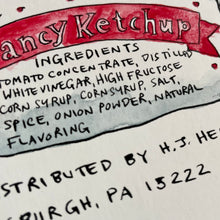 ancy Ketchup
INGREDIENTS
TOMATO CONCENTRATE, DISTILLED
WHITE VINEGAR, HIGH FRUCTOSE
CORN SYRUP, CORN SYRUP, SALT,
SPICE, ONION POWDER, NATURAL
FLAVORING
STRIBUTED BY H.J. HE
SBURGH, PA 15222